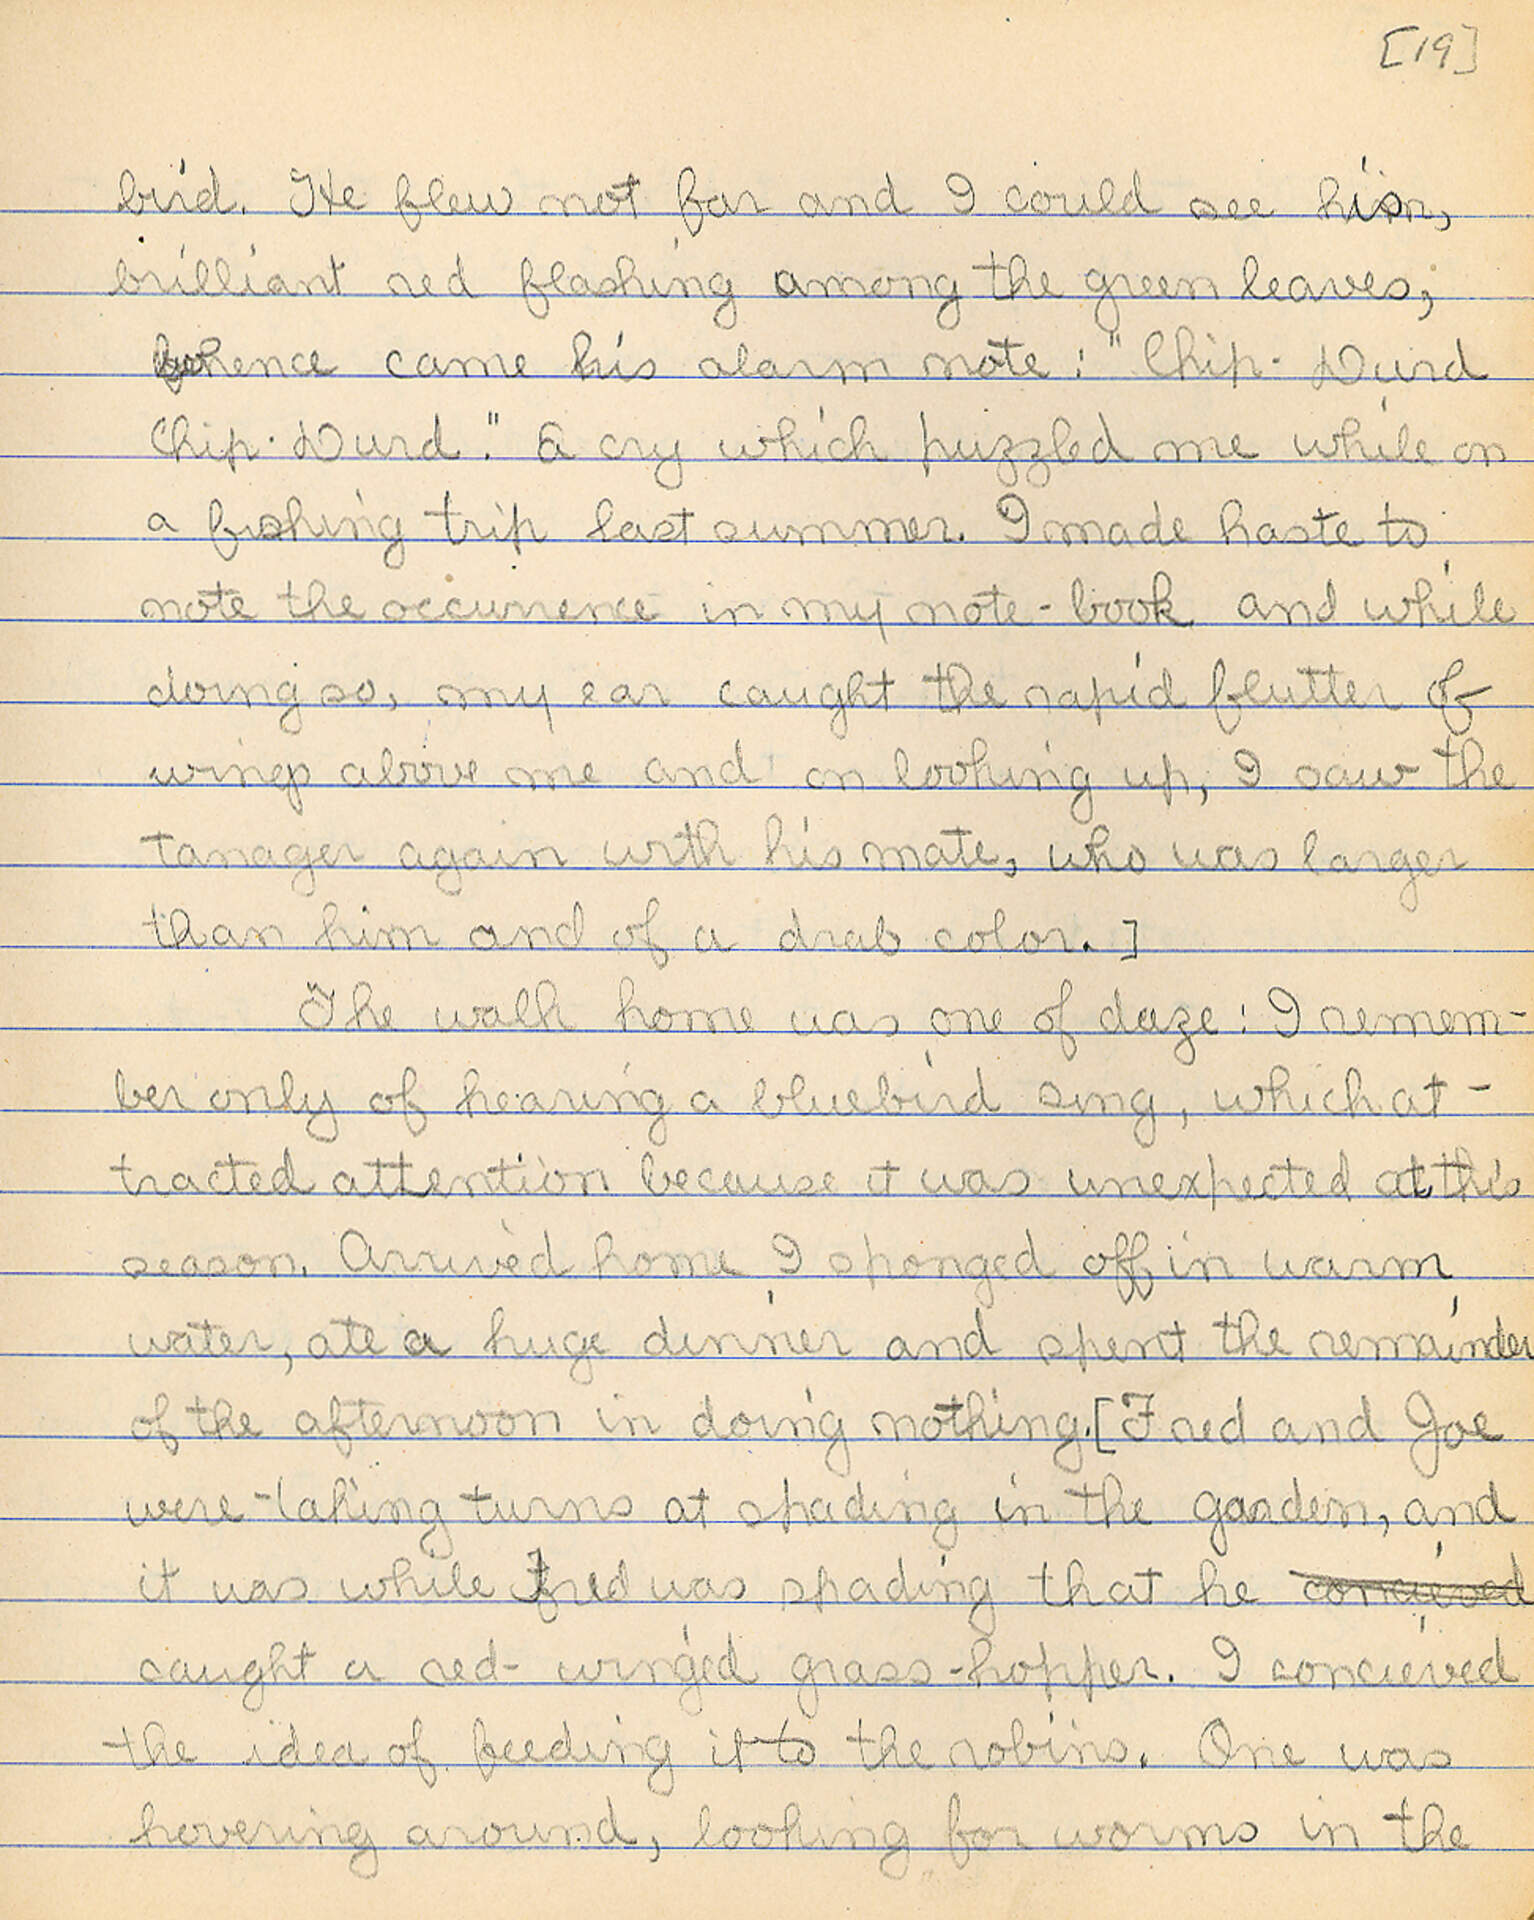 [19]
bird. He flew not far and I could see him,
brilliant red flashing among the green leaves,
whence came his alarm note: "Chip-Durd
Chip-Durd." A cry which puzzled me while on
a fishing trip last summer. I made haste to
note the occurrence in my note-book and while
doing so, my ear caught the rapid flutter of
wings above me and on looking up, I saw the
tanager again with his mate, who was larger
than him and of a drab color.]
The walk home was one of daze: I remem-
ber only of hearing a bluebird sing, which at-
tracted attention because it was unexpected at this
season. Arrived home I sponged off in warm
water, ate a huge dinner and spent the remainder
of the afternoon in doing nothing. [Fred and Joe
were taking turns at spading in the garden, and
it was while Fred was spading that he concieved
caught a red-winged grass-hopper. I concieved
the idea of feeding it to the robins. One was
hovering around, looking for worms in the